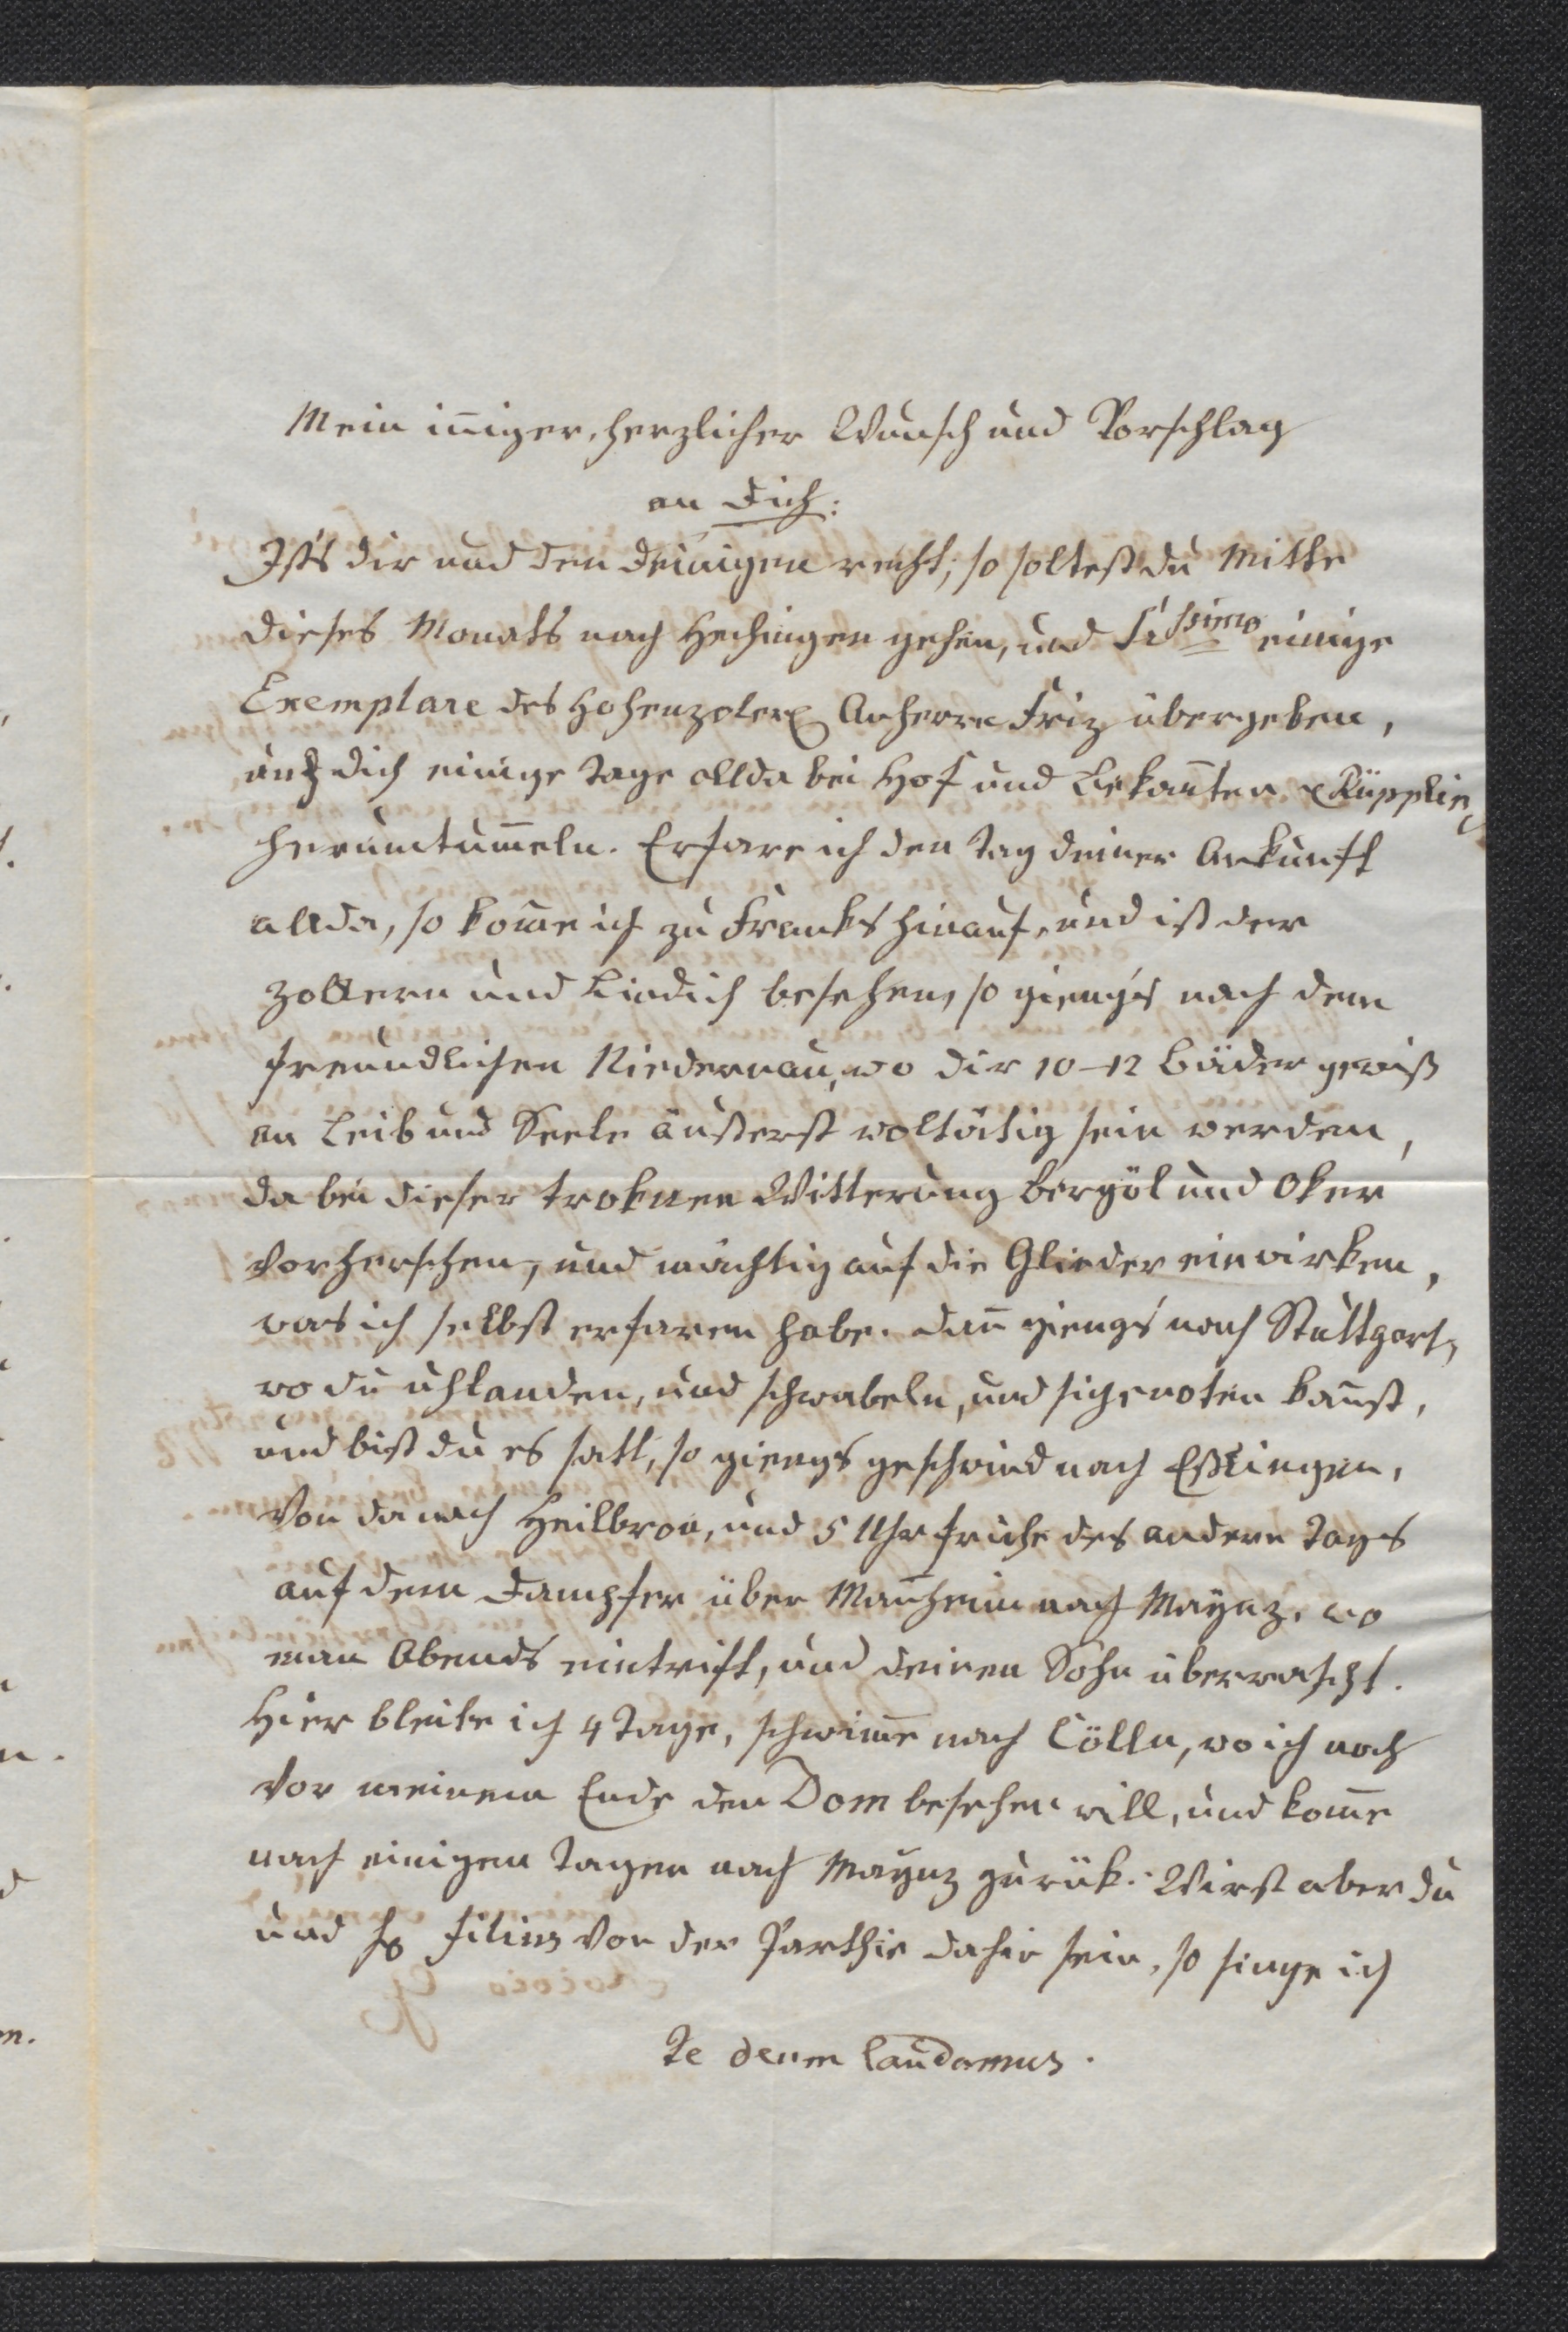 Mein in̄iger, herzlicher Wunsch und Vorschlag
an Dich:
Ist's dir und den Deinigen recht, so soltest du Mitte
dieses Monats nach Hechingen gehen, und S'issimo einige
Exemplare des Hohenzoler Anherrn Friz übergeben,
und dich einige Tage allda bei Hof und Bekan̄ten Rüpplin
herumtum̄eln. Erfare ich den Tag deiner Ankunft
allda, so kom̄e ich zu Franks hinauf, und ist der
Zollern und Lindich besehen, so gieng's nach dem
freundlichen Niedernau, wo dir 10–12 Bäder gewiß
an Leib und Seele äußerst woltätig sein werden,
da bei dieser troknen Witterung Bergöl und Oker
vorherschen, und mächtig auf die Glieder einwirken,
was ich selbst erfaren habe. Dan̄ giengs nach Stuttgart,
wo du uhlanden, und schwabeln, und sich noten kan̄st,
und bist du es satt, so giengs geschwind nach Eßlingen,
von da nach Heilbron, und 5 Uhr frühe des andern Tags
auf dem Dampfer über Man̄heim nach Maynz, wo
man Abends eintrift, und deinen Sohn überrascht.
Hier bleibe ich 4 Tage, schwim̄e nach Cölln, wo ich noch
vor meinem Ende den Dom besehen will, und kom̄e
nach einigen Tagen nach Maynz zurük. Wirst aber du
und H. Filius von der Parthie dahin sein, so singe ich
Te deum laudamus.